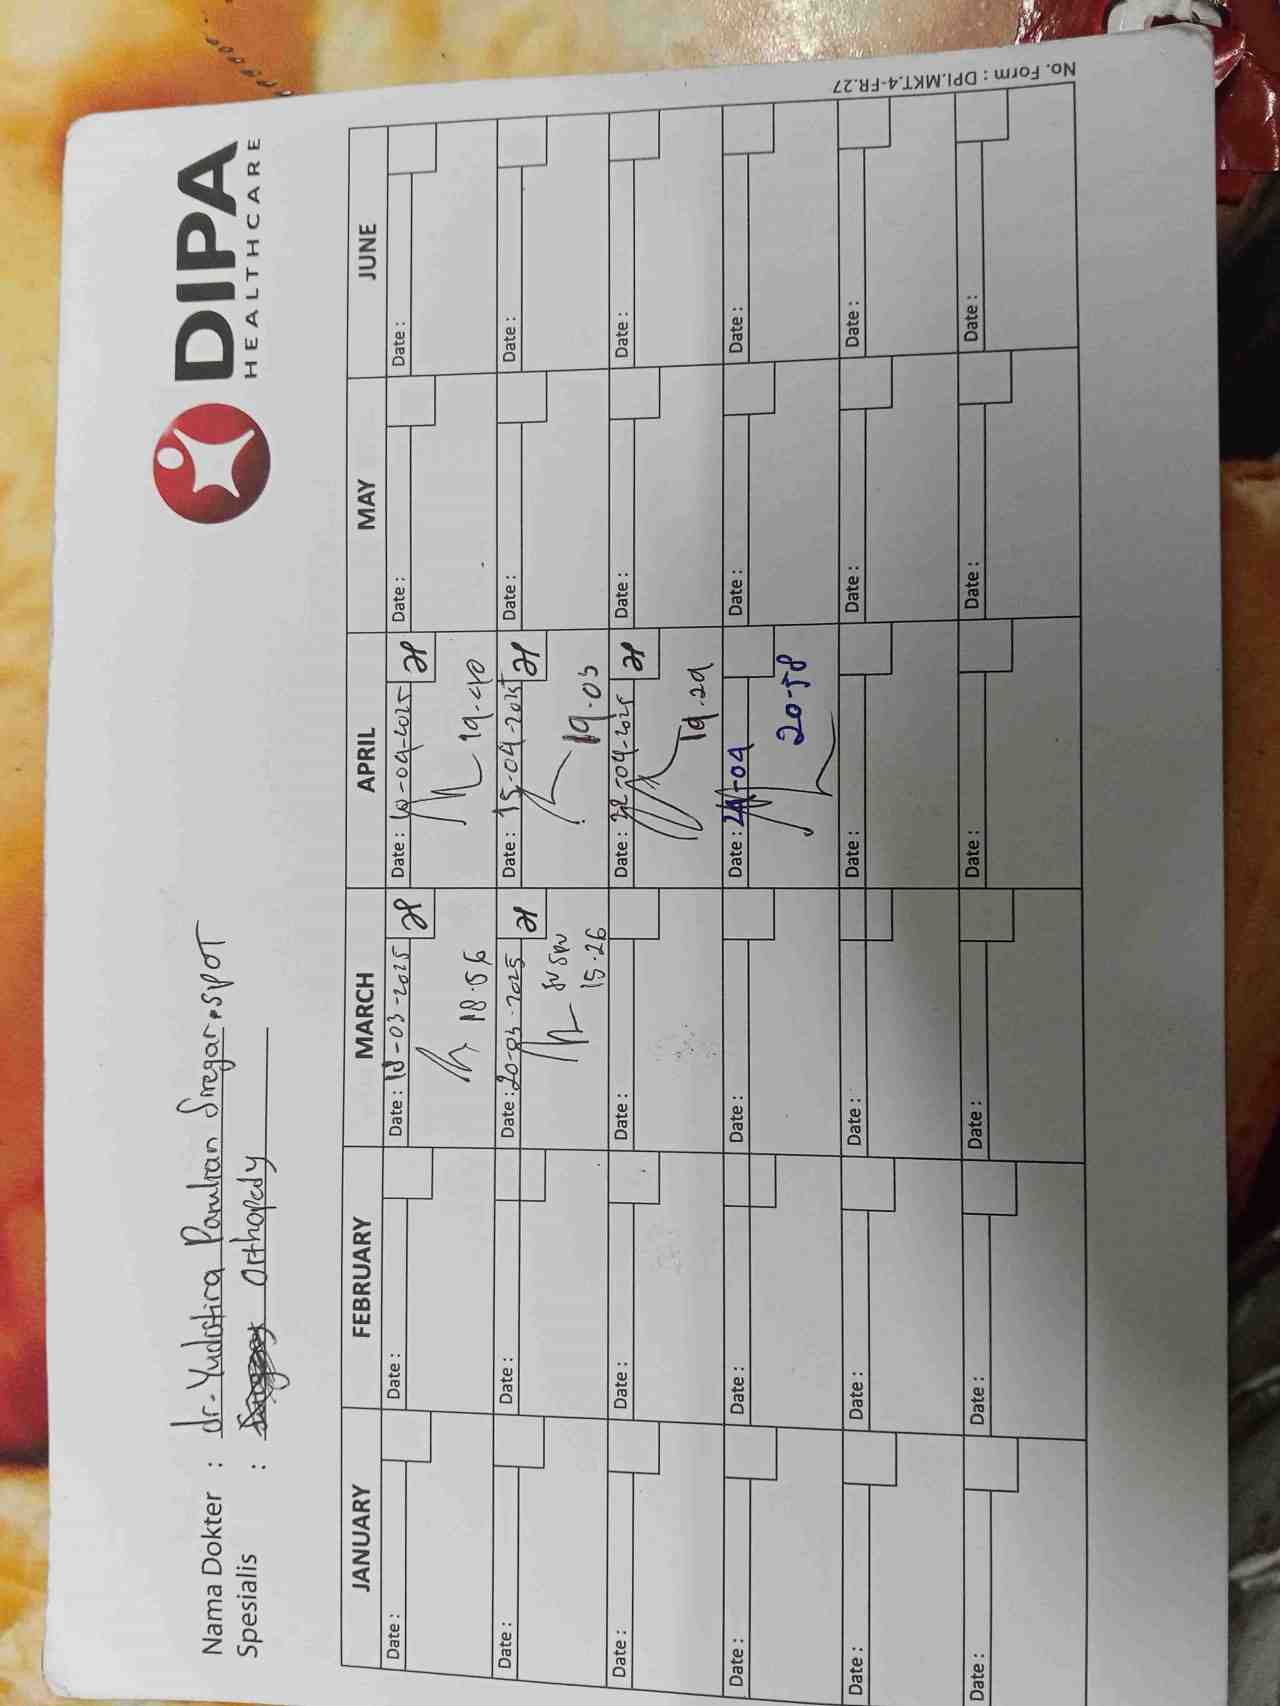 DIPA
HEALTHCARE
Nama Dokter : dr. Yudistira Panulian Siregar, SPOT
Spesialis : Orthopedy
JANUARY FEBRUARY MARCH APRIL MAY JUNE
Date : Date : Date : 18-03-2025 Date : 10-04-2025 Date : Date :
18.56 19.40
Date : Date : Date : 20-03-2025 Date : 15-04-2025 Date : Date :
15.26 19.03
Date : Date : Date : Date : 22-04-2025 Date : Date :
19.29
Date : Date : Date : Date : 24-04 Date : Date :
20-58
Date : Date : Date : Date : Date :
Date : Date : Date : Date : Date : Date :
No. Form : DPI.MKT.4-FR.27